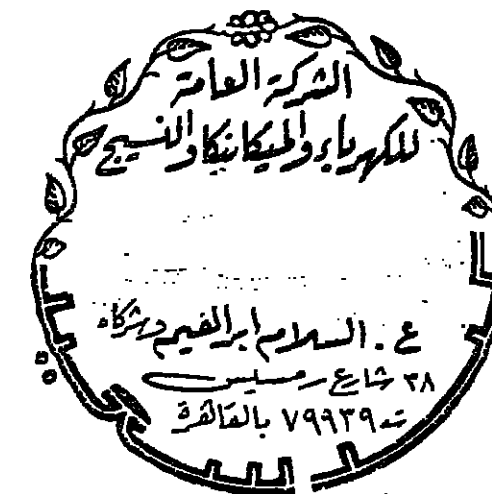 الشركة العامة
للكهرباء والميكانيكا والنسيج
ع . السلام ابراهيم وشركاه
٣٨ شارع رمسيس
ت ٧٩٩٣٩ بالقاهرة